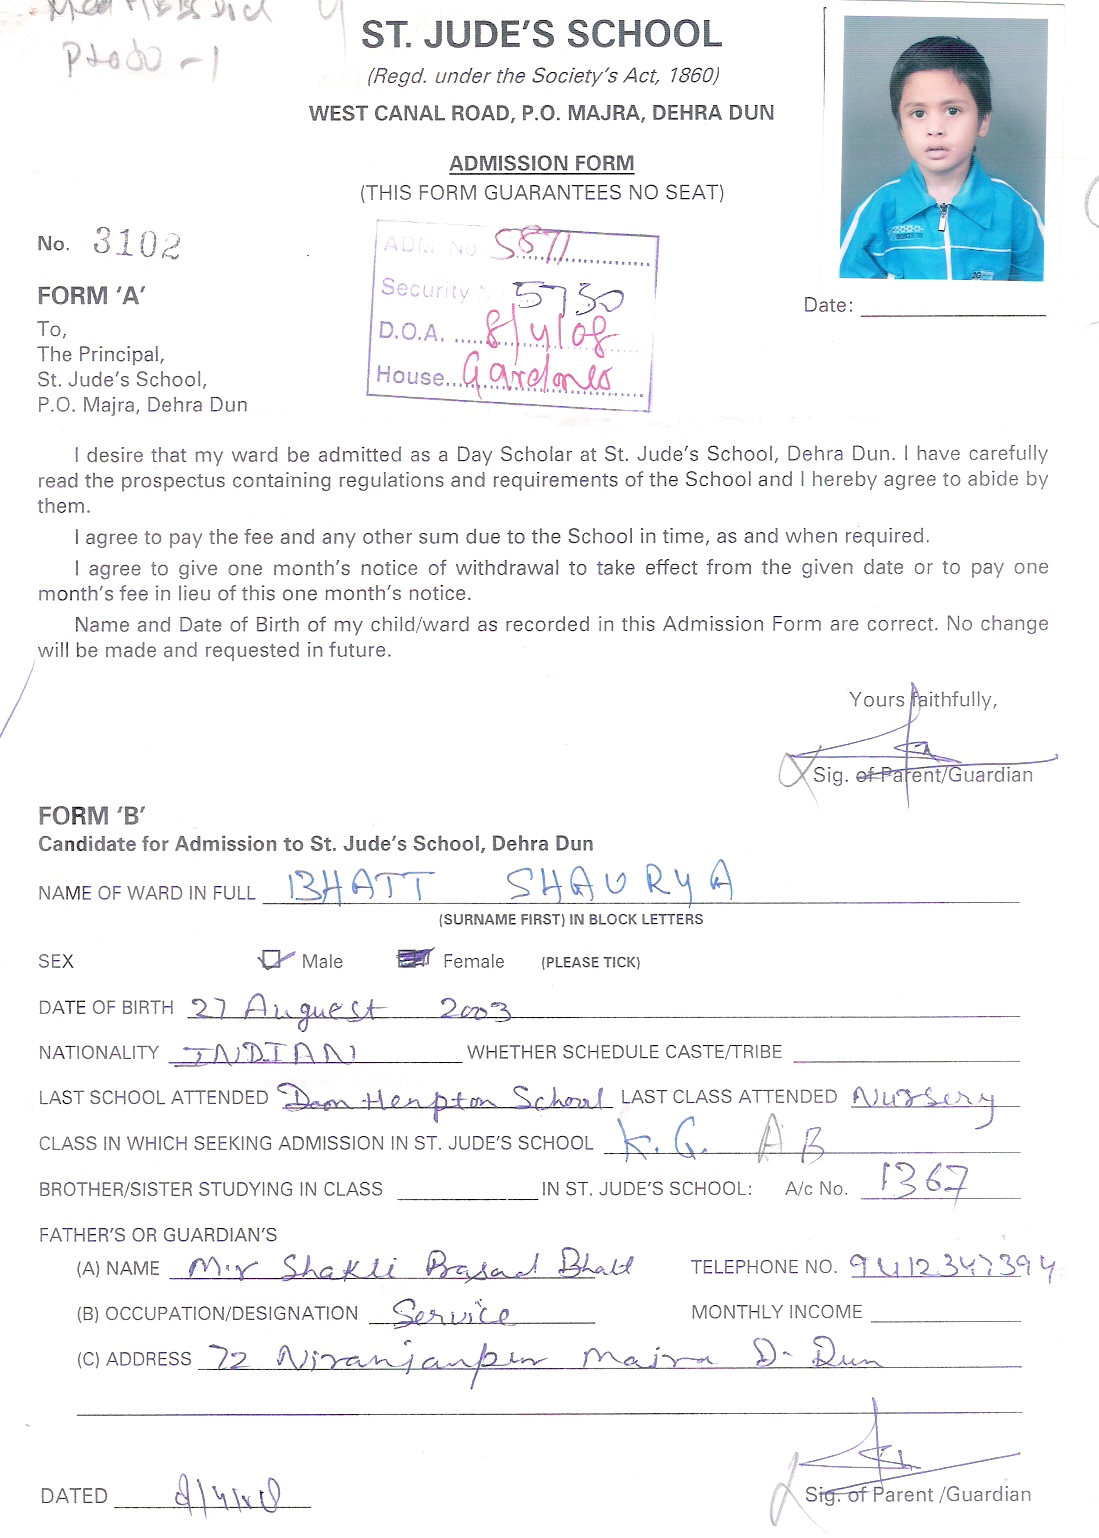 ST. JUDE'S SCHOOL
(Regd. under the Society's Act, 1860)
WEST CANAL ROAD, P.O. MAJRA, DEHRA DUN
ADMISSION FORM
(THIS FORM GUARANTEES NO SEAT)
No. 3102
ADM. No 5871
Security 5730
D.O.A. 8/4/08
House
Date:
FORM 'A'
To,
The Principal,
St. Jude's School,
P.O. Majra, Dehra Dun
I desire that my ward be admitted as a Day Scholar at St. Jude's School, Dehra Dun. I have carefully
read the prospectus containing regulations and requirements of the School and I hereby agree to abide by
them.
I agree to pay the fee and any other sum due to the School in time, as and when required.
I agree to give one month's notice of withdrawal to take effect from the given date or to pay one
month's fee in lieu of this one month's notice.
Name and Date of Birth of my child/ward as recorded in this Admission Form are correct. No change
will be made and requested in future.
Yours faithfully,
Sig. of Parent/Guardian
FORM 'B'
Candidate for Admission to St. Jude's School, Dehra Dun
NAME OF WARD IN FULL BHATT SHAURYA
(SURNAME FIRST) IN BLOCK LETTERS
SEX Male Female (PLEASE TICK)
DATE OF BIRTH 27 Auguest 2003
NATIONALITY INDIAN WHETHER SCHEDULE CASTE/TRIBE
LAST SCHOOL ATTENDED Doon Henpton School LAST CLASS ATTENDED Nursery
CLASS IN WHICH SEEKING ADMISSION IN ST. JUDE'S SCHOOL K.G. A B
BROTHER/SISTER STUDYING IN CLASS IN ST. JUDE'S SCHOOL: A/c No. 1367
FATHER'S OR GUARDIAN'S
(A) NAME Mr Shakti Prasad Bhatt TELEPHONE NO. 9412347394
(B) OCCUPATION/DESIGNATION Service MONTHLY INCOME
(C) ADDRESS 72 Niranjanpur Majra D. Dun
DATED
Sig. of Parent /Guardian